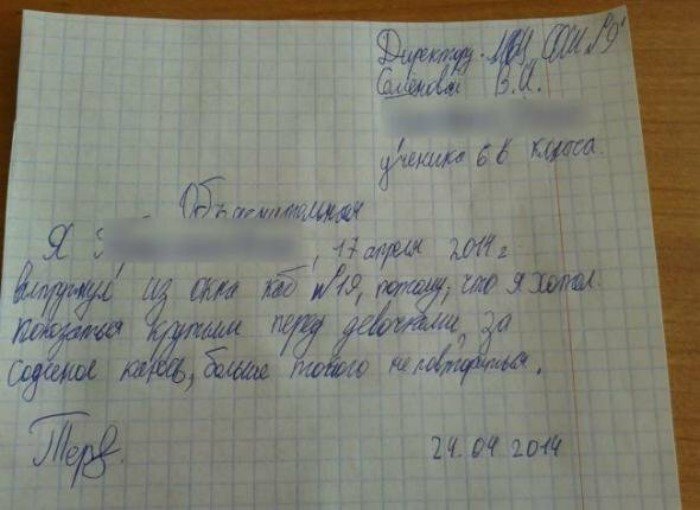 Директору МОУ СОШ №9
Семёновой В.И.
ученика 6 в класса.
Объяснительная
Я
, 17 апреля 2014 г.
выпрыгнул из окна каб №19, потому, что я хотел
показаться крутым перед девочками, за
содеяное каюсь, больше такого не повториться.
24.04 2014